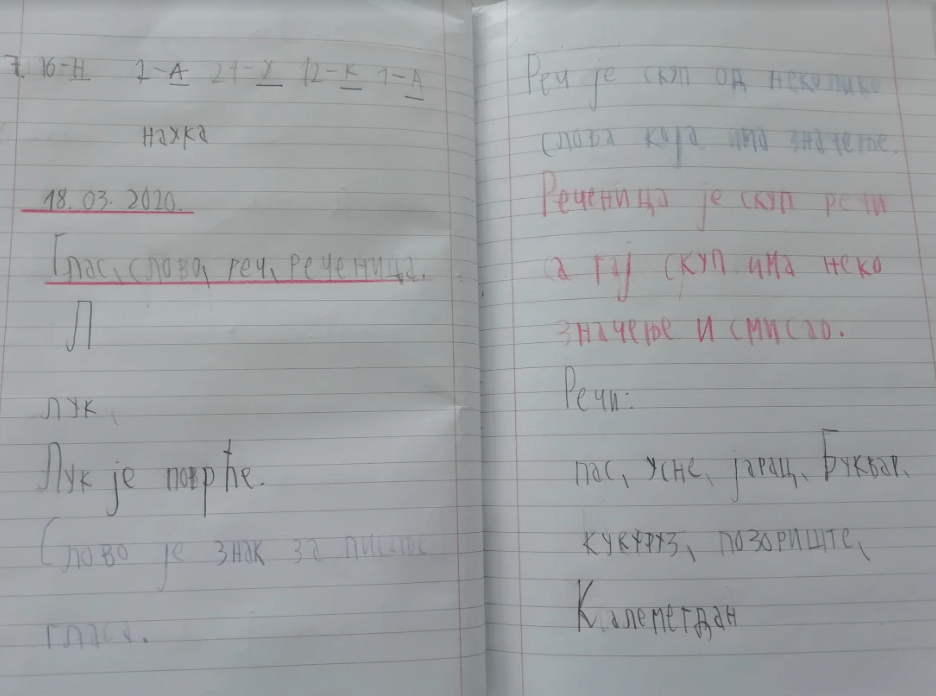 7. 16-Н 1-А 21-У 12-К 1-А
наука
18.03.2020.
Глас, слово, реч, реченица.
Л
лук,
Лук је поврће.
Слово је знак за писање
гласа.
Реч је скуп од неколико
слова која има значење.
Реченица је скуп речи
а тај скуп има неко
значење и смисао.
Речи:
пас, усне, јарац, Буквар,
кукуруз, позориште,
Калемегдан